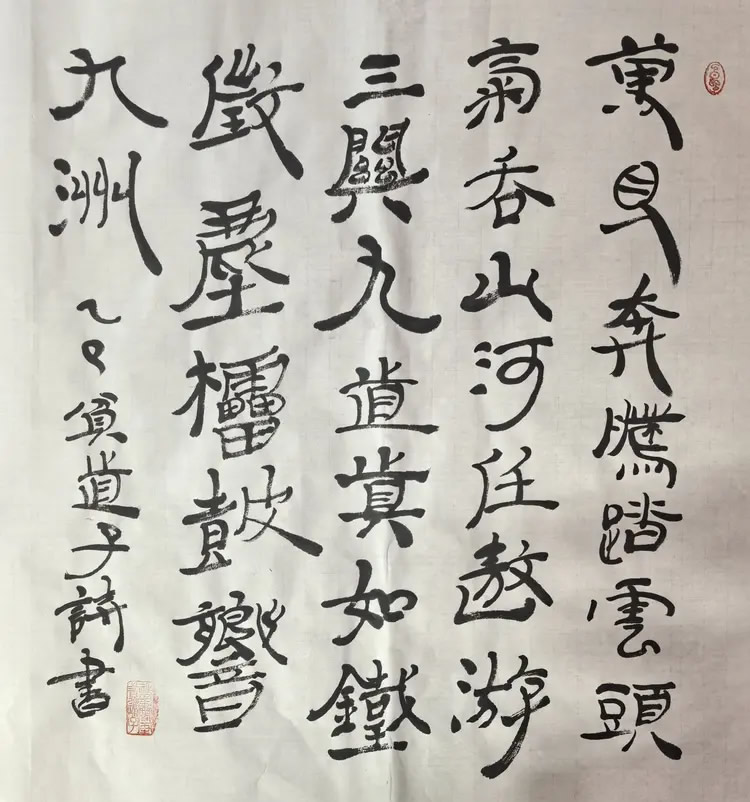 萬馬奔騰踏雲頭
氣吞山河任遨游
三關九道真如鐵
徵塵櫑鼓響
九洲 乙巳負道子詩書